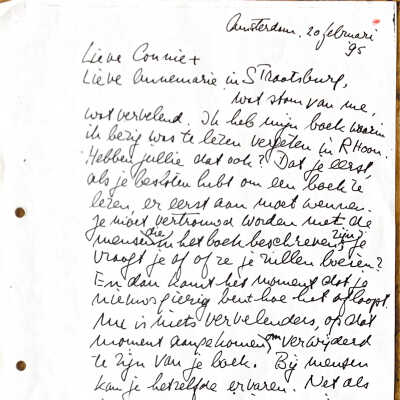 Amsterdam, 20 februari
'95
Lieve Connie +
Lieve Annemarie in Straatsburg,
wat stom van me,
wat vervelend. Ik heb mijn boek waarin
ik bezig was te lezen vergeten in Rhoon.
Hebben jullie dat ook? Dat je eerst,
als je besloten hebt om een boek te
lezen er eerst aan moet wennen.
Je moet vertrouwd worden met de
mensen die in het boek beschreven zijn? Je
vraagt je af of ze je zullen boeien?
En dan komt het moment dat je
nieuwsgierig bent hoe het afloopt.
Nu is niets vervelenders, op dat
moment aangekomen, om verwijderd
te zijn van je boek. Bij mensen
kan je hetzelfde ervaren. Net als